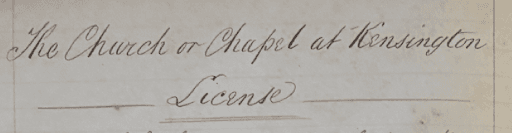 The Church or Chapel at Kensington
License